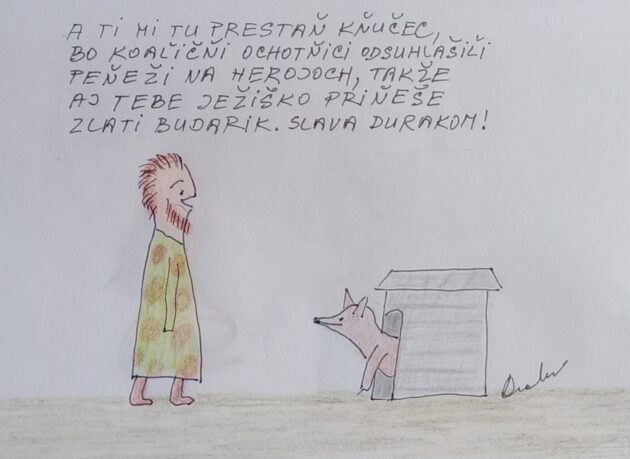 A TI MI TU PRESTAŇ KŇUČEC,
BO KOAĽIČŇI OCHOTŇICI ODSUHLAŠIĽI
PEŇEŽI NA HEROJOCH, TAKŽE
AJ TEBE JEŽIŠKO PRIŇEŠE
ZLATI BUDARIK. SLAVA DURAKOM!